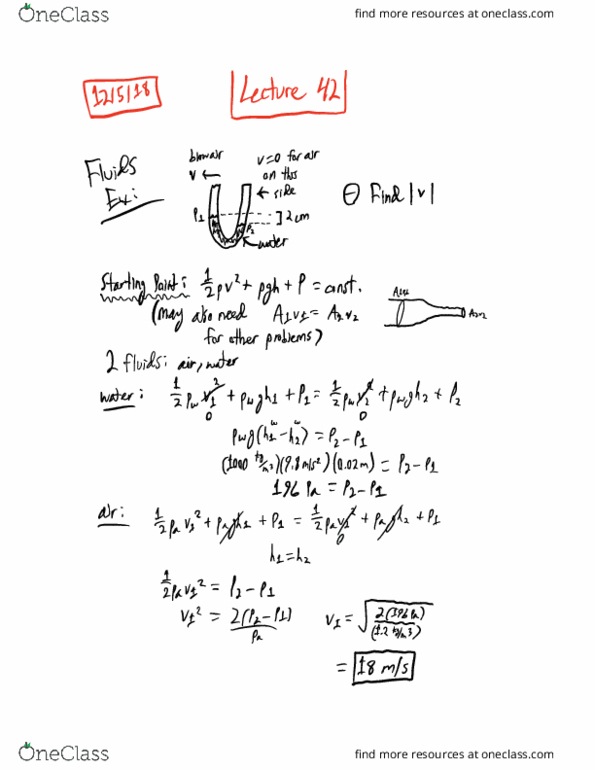 OneClass
find more resources at oneclass.com
12/5/18
Lecture 42
Fluids
Ex:
blow air
v ←
v=0 for air
on this
← side
P1
P2
]2 cm
water
⊖ Find |v|
Starting Point: 1/2 ρv² + ρgh + P = const.
(may also need A1v1 = A2v2
for other problems)
A1v1
A2v2
2 fluids: air, water
water: 1/2 ρw v1² + ρwgh1 + P1 = 1/2 ρw v2² + ρwgh2 + P2
0 0
ρwg(h1w - h2w) = P2 - P1
(1000 kg/m3)(9.8 m/s²)(0.02m) = P2 - P1
196 Pa = P2 - P1
air: 1/2 ρa v1² + ρagh1 + P1 = 1/2 ρa v2² + ρagh2 + P1
0
h1 = h2
1/2 ρa v1² = P2 - P1
v1² = 2(P2 - P1)/ρa
v1 = √2(196 Pa)/(1.2 kg/m3)
= 18 m/s
OneClass
find more resources at oneclass.com